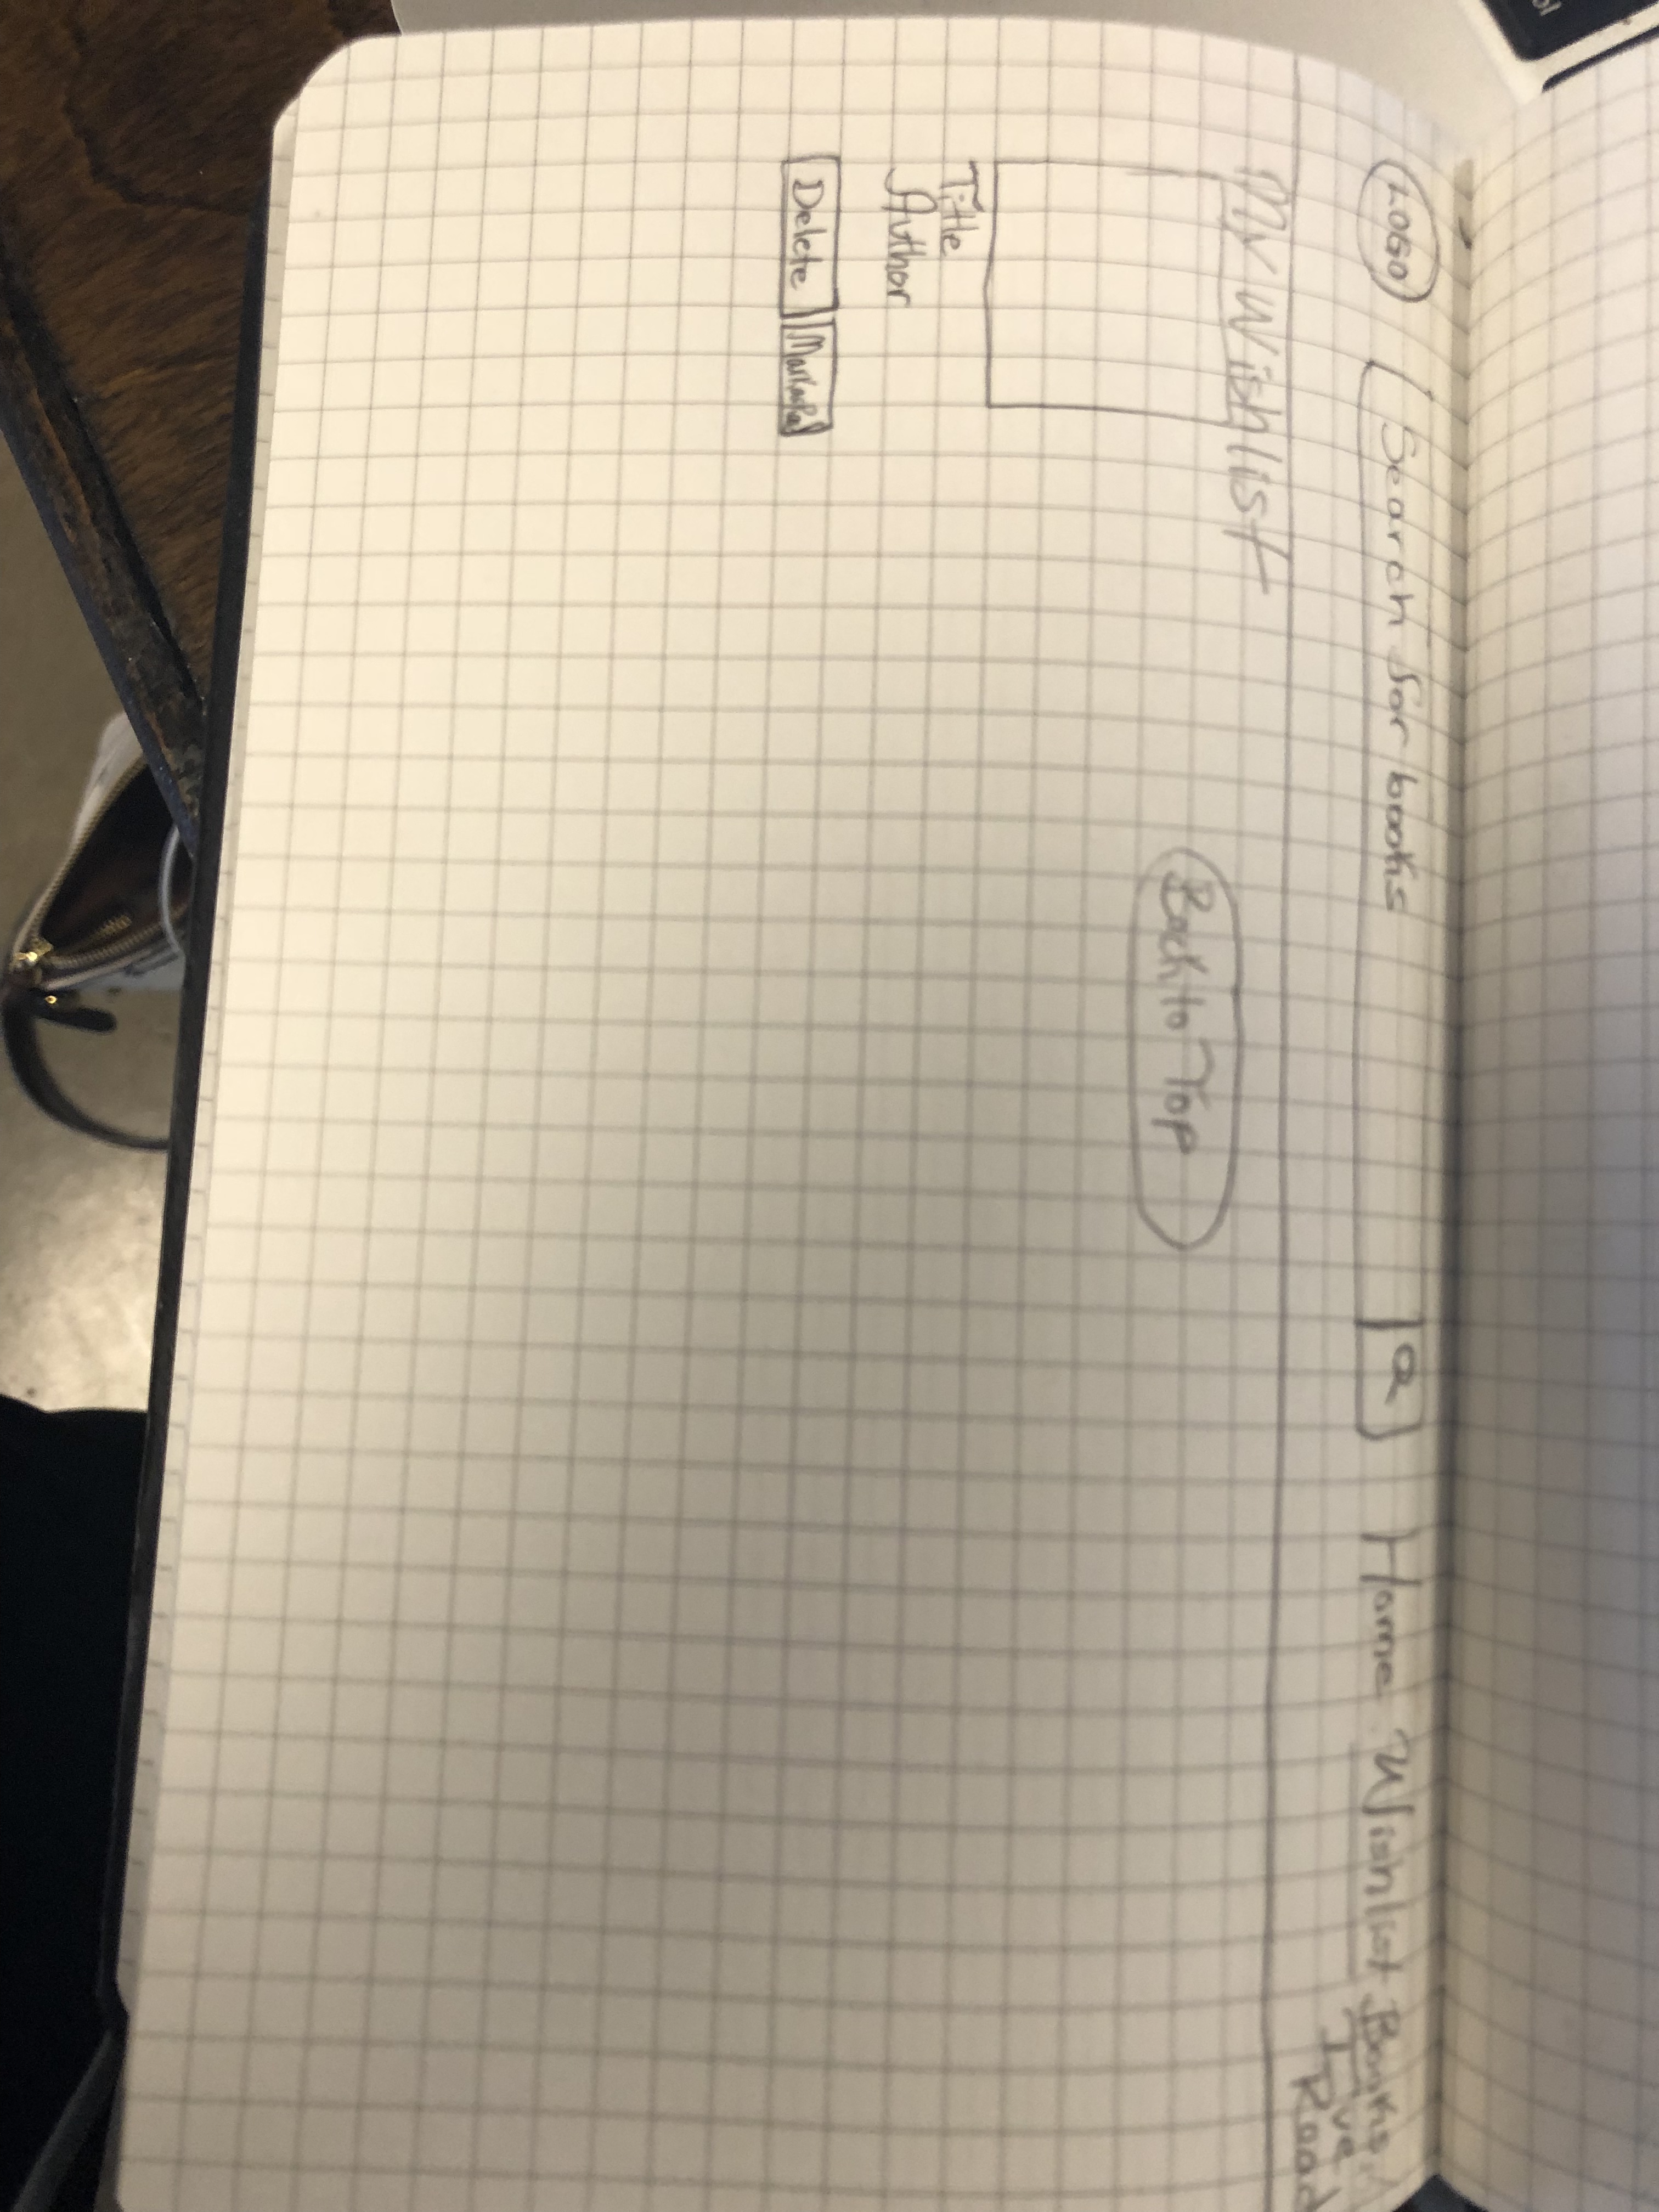 LOGO
Search for books
Home
Wishlist
Books
I've
Read
My Wishlist
Back to Top
Title
Author
Delete